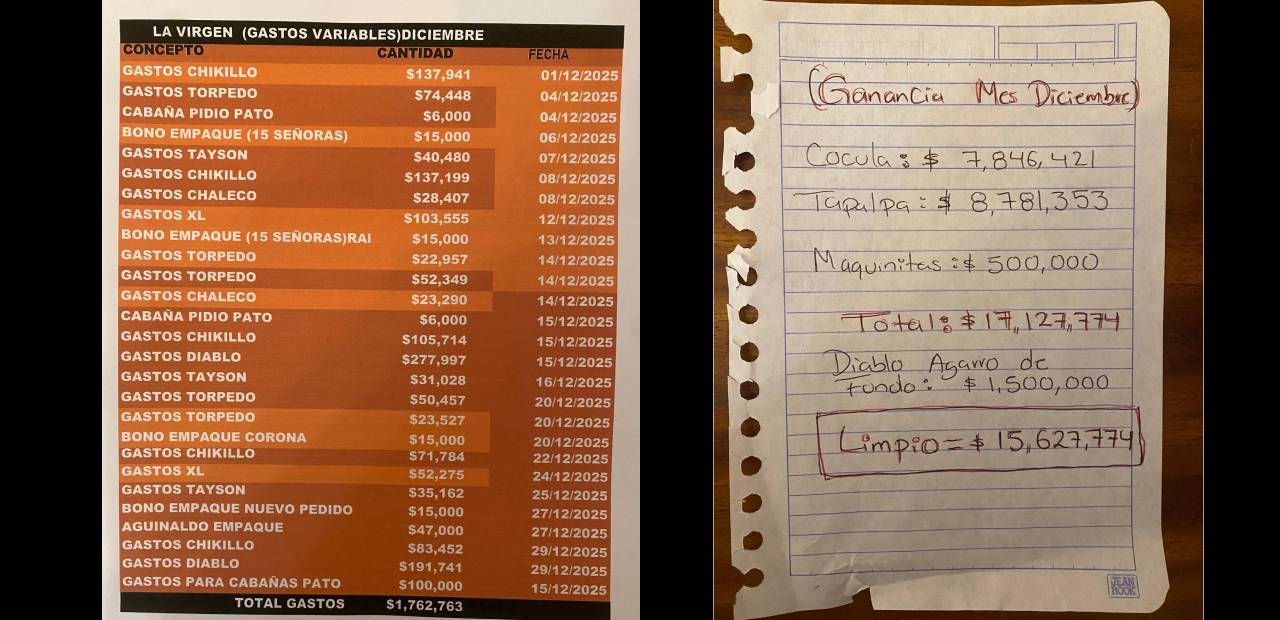 LA VIRGEN (GASTOS VARIABLES)DICIEMBRE
CONCEPTO CANTIDAD FECHA
GASTOS CHIKILLO $137,941 01/12/2025
GASTOS TORPEDO $74,448 04/12/2025
CABAÑA PIDIO PATO $6,000 04/12/2025
BONO EMPAQUE (15 SEÑORAS) $15,000 06/12/2025
GASTOS TAYSON $40,480 07/12/2025
GASTOS CHIKILLO $137,199 08/12/2025
GASTOS CHALECO $28,407 08/12/2025
GASTOS XL $103,555 12/12/2025
BONO EMPAQUE (15 SEÑORAS)RAI $15,000 13/12/2025
GASTOS TORPEDO $22,957 14/12/2025
GASTOS TORPEDO $52,349 14/12/2025
GASTOS CHALECO $23,290 14/12/2025
CABAÑA PIDIO PATO $6,000 15/12/2025
GASTOS CHIKILLO $105,714 15/12/2025
GASTOS DIABLO $277,997 15/12/2025
GASTOS TAYSON $31,028 16/12/2025
GASTOS TORPEDO $50,457 20/12/2025
GASTOS TORPEDO $23,527 20/12/2025
BONO EMPAQUE CORONA $15,000 20/12/2025
GASTOS CHIKILLO $71,784 22/12/2025
GASTOS XL $52,275 24/12/2025
GASTOS TAYSON $35,162 25/12/2025
BONO EMPAQUE NUEVO PEDIDO $15,000 27/12/2025
AGUINALDO EMPAQUE $47,000 27/12/2025
GASTOS CHIKILLO $83,452 29/12/2025
GASTOS DIABLO $191,741 29/12/2025
GASTOS PARA CABAÑAS PATO $100,000 15/12/2025
TOTAL GASTOS $1,762,763
(Ganancia Mes Diciembre)
Cocula: $ 7,846,421
Tapalpa: $ 8,781,353
Maquinitas: $ 500,000
Total: $ 17,127,774
Diablo Agarro de
fondo: $ 1,500,000
Limpio = $ 15,627,774
JEAN
BOOK